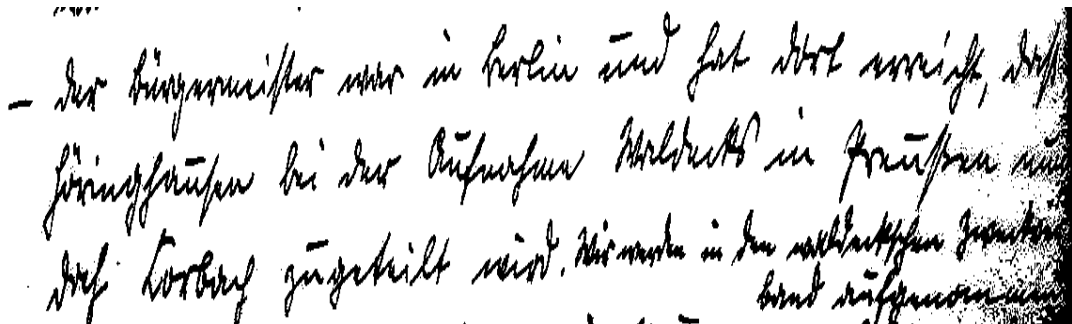 – der Bürgermeister war in Berlin und hat dort erreicht, daß
Höringhausen bei der Aufnahme Waldecks in Preußen nun
doch Corbach zugeteilt wird. Wir werden in den waldeckschen
band aufgenommen